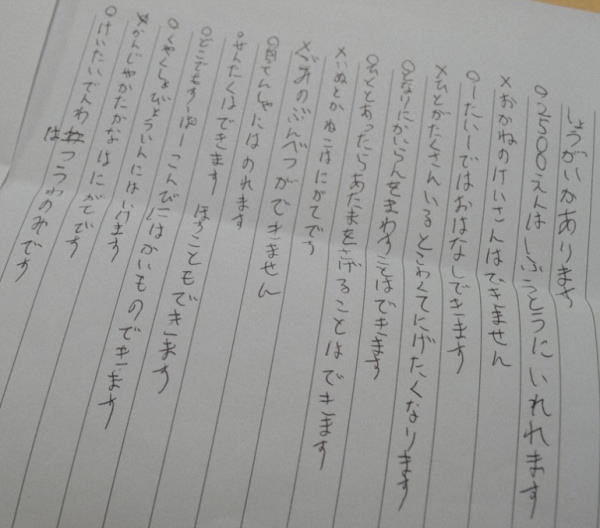 しょうがいがあります
○2500えんは ふうとうにいれれます
×おかねのけいさんはできません
○一たい一ではおはなしできます
×ひとがたくさんいるとこわくてにげたくなります
○となりにかいらんをまわすことはできます
○ひととあったらあたまをさげることはできます
×いぬとかねこはにがてです
×ごみのぶんべつができません
○じてんしゃにはのれます
○せんたくはできます ほすこともできます
○どこでもすーぱー こんびにはかいものできます
○くやくしょびょういんにはいけます
×かんじやかたかなはにがてです
○けいたいでんわはつうわのみです